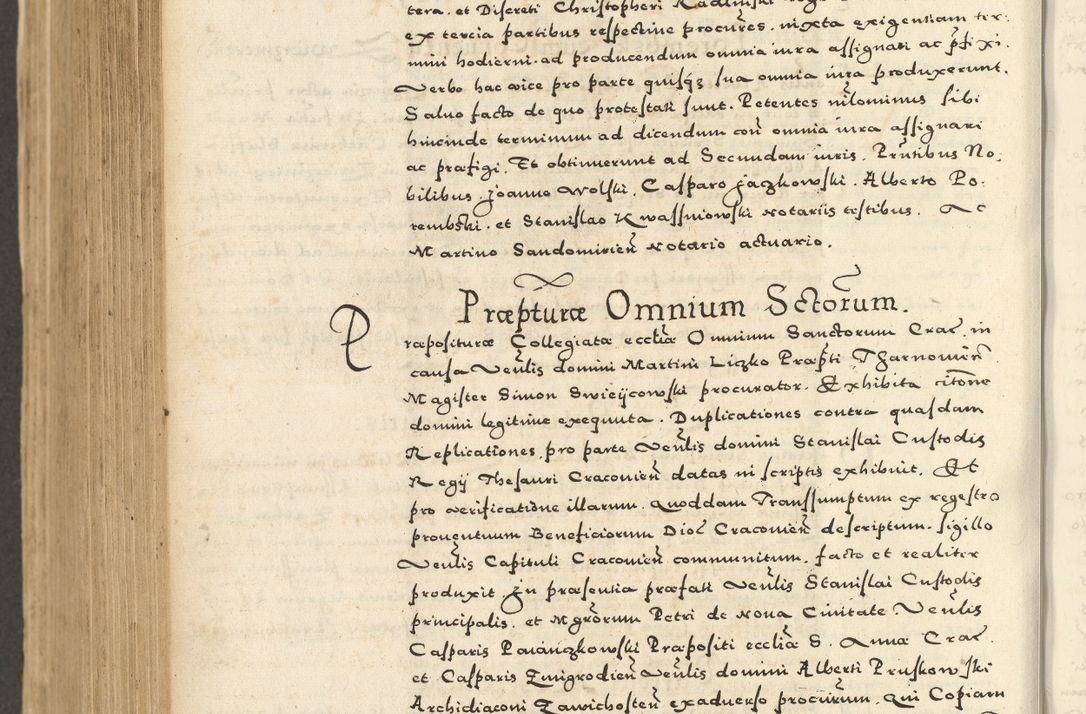 tera. et Discreti Christopheri Radlinski
ex tercia partibus respectiue procures. iuxta exigentiam ter:
mini hodierni. ad producendum omnia iura assignati ac pfixi.
Verbo hac vice pro parte quisq3 sua omnia iura produxerunt.
Saluo facto de quo protestati sunt. Petentes nilominus sibi
hincinde terminum ad dicendum con omnia iura assignari
ac præfigi. Et obtinuerunt ad Secundam iuris. Prntibus No:
bilibus. Joanne Wolski. Casparo Jaczkowski. Alberto Po:
rembski. et Stanislao Kwassniowski notariis testibus. Ac
Martino Sandomirien notario actuario.
Præpturæ Omnium Sctorum.
Præpositurae Collegiatæ ecctiæ Omnium Sanctorum Crac. in
causa Venlis domini Martini Liczko Præpti Tharnouien
Magister Simon Swieijcowski procurator. Exhibita citone
domini legitime exequuta. Duplicationes contra quasdam
Replicationes pro parte Venlis domini Stanislai Custodis
Regij Thesauri Cracouien datas in scriptis exhibuit. Et
pro verificatione illarum. quoddam Transsumptum ex regestro
prouentuum Beneficiorum Dioc Cracouien descriptum. sigillo
Venlis Capituli Cracouien communitum. facto et realiter
produxit. Jn præsentia præfati Venlis Stanislai Custodis
principalis. et Mgrorum Petri de Noua Ciuitate Venlis
Casparis Paianczkowski Præpositi ecctiæ S. Annæ Crac.
et Casparis Zmigrodien Venlis domini Alberti Pruskowski
Archidiaconi Zawichosten exaduerso procurum. Qui Copiam